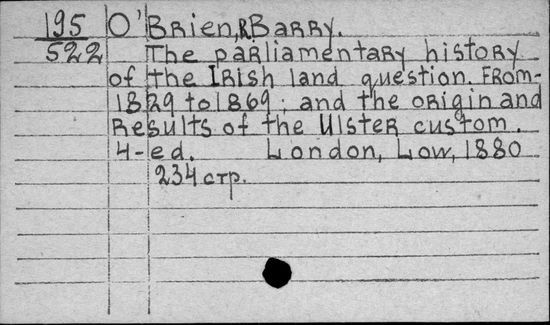 195 O'Brien, R Barry.
522 The parliamentary history
of the Irish land question. From-
1829 to 1869; and the origin and
Results of the Ulster custom.
4-ed. London, Low, 1880
234 стр.